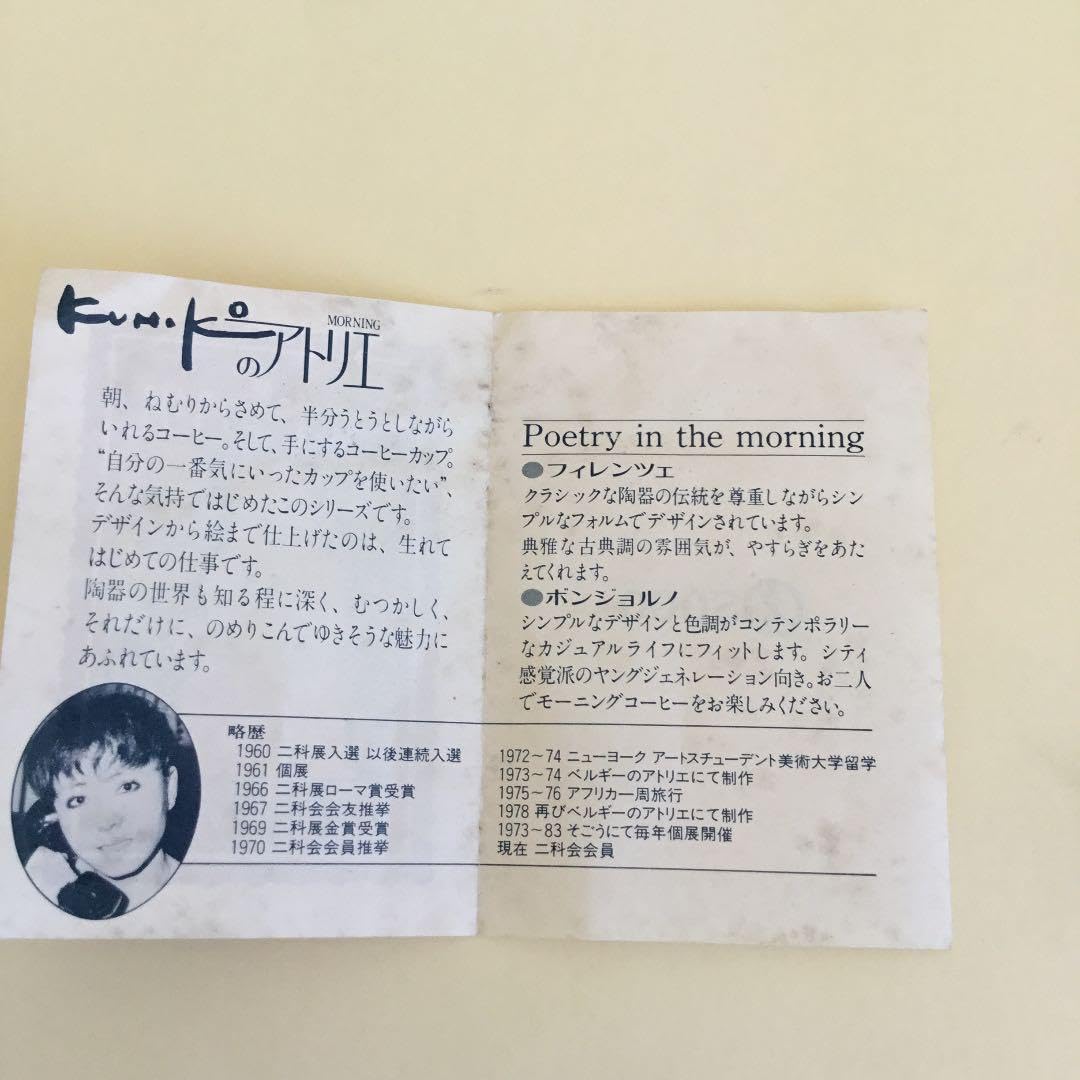 KUNIKO
MORNING
のアトリエ
朝、ねむりからさめて、半分うとうとしながら
いれるコーヒー。そして、手にするコーヒーカップ。
“自分の一番気にいったカップを使いたい”、
そんな気持ではじめたこのシリーズです。
デザインから絵まで仕上げたのは、生れて
はじめての仕事です。
陶器の世界も知る程に深く、むつかしく、
それだけに、のめりこんでゆきそうな魅力に
あふれています。
略歴
1960 二科展入選 以後連続入選
1961 個展
1966 二科展ローマ賞受賞
1967 二科会会友推挙
1969 二科展金賞受賞
1970 二科会会員推挙
Poetry in the morning
●フィレンツェ
クラシックな陶器の伝統を尊重しながらシン
プルなフォルムでデザインされています。
典雅な古典調の雰囲気が、やすらぎをあた
えてくれます。
●ボンジョルノ
シンプルなデザインと色調がコンテンポラリー
なカジュアルライフにフィットします。シティ
感覚派のヤングジェネレーション向き。お二人
でモーニングコーヒーをお楽しみください。
1972~74 ニューヨーク アートスチューデント美術大学留学
1973~74 ベルギーのアトリエにて制作
1975~76 アフリカ一周旅行
1978 再びベルギーのアトリエにて制作
1973~83 そごうにて毎年個展開催
現在 二科会会員